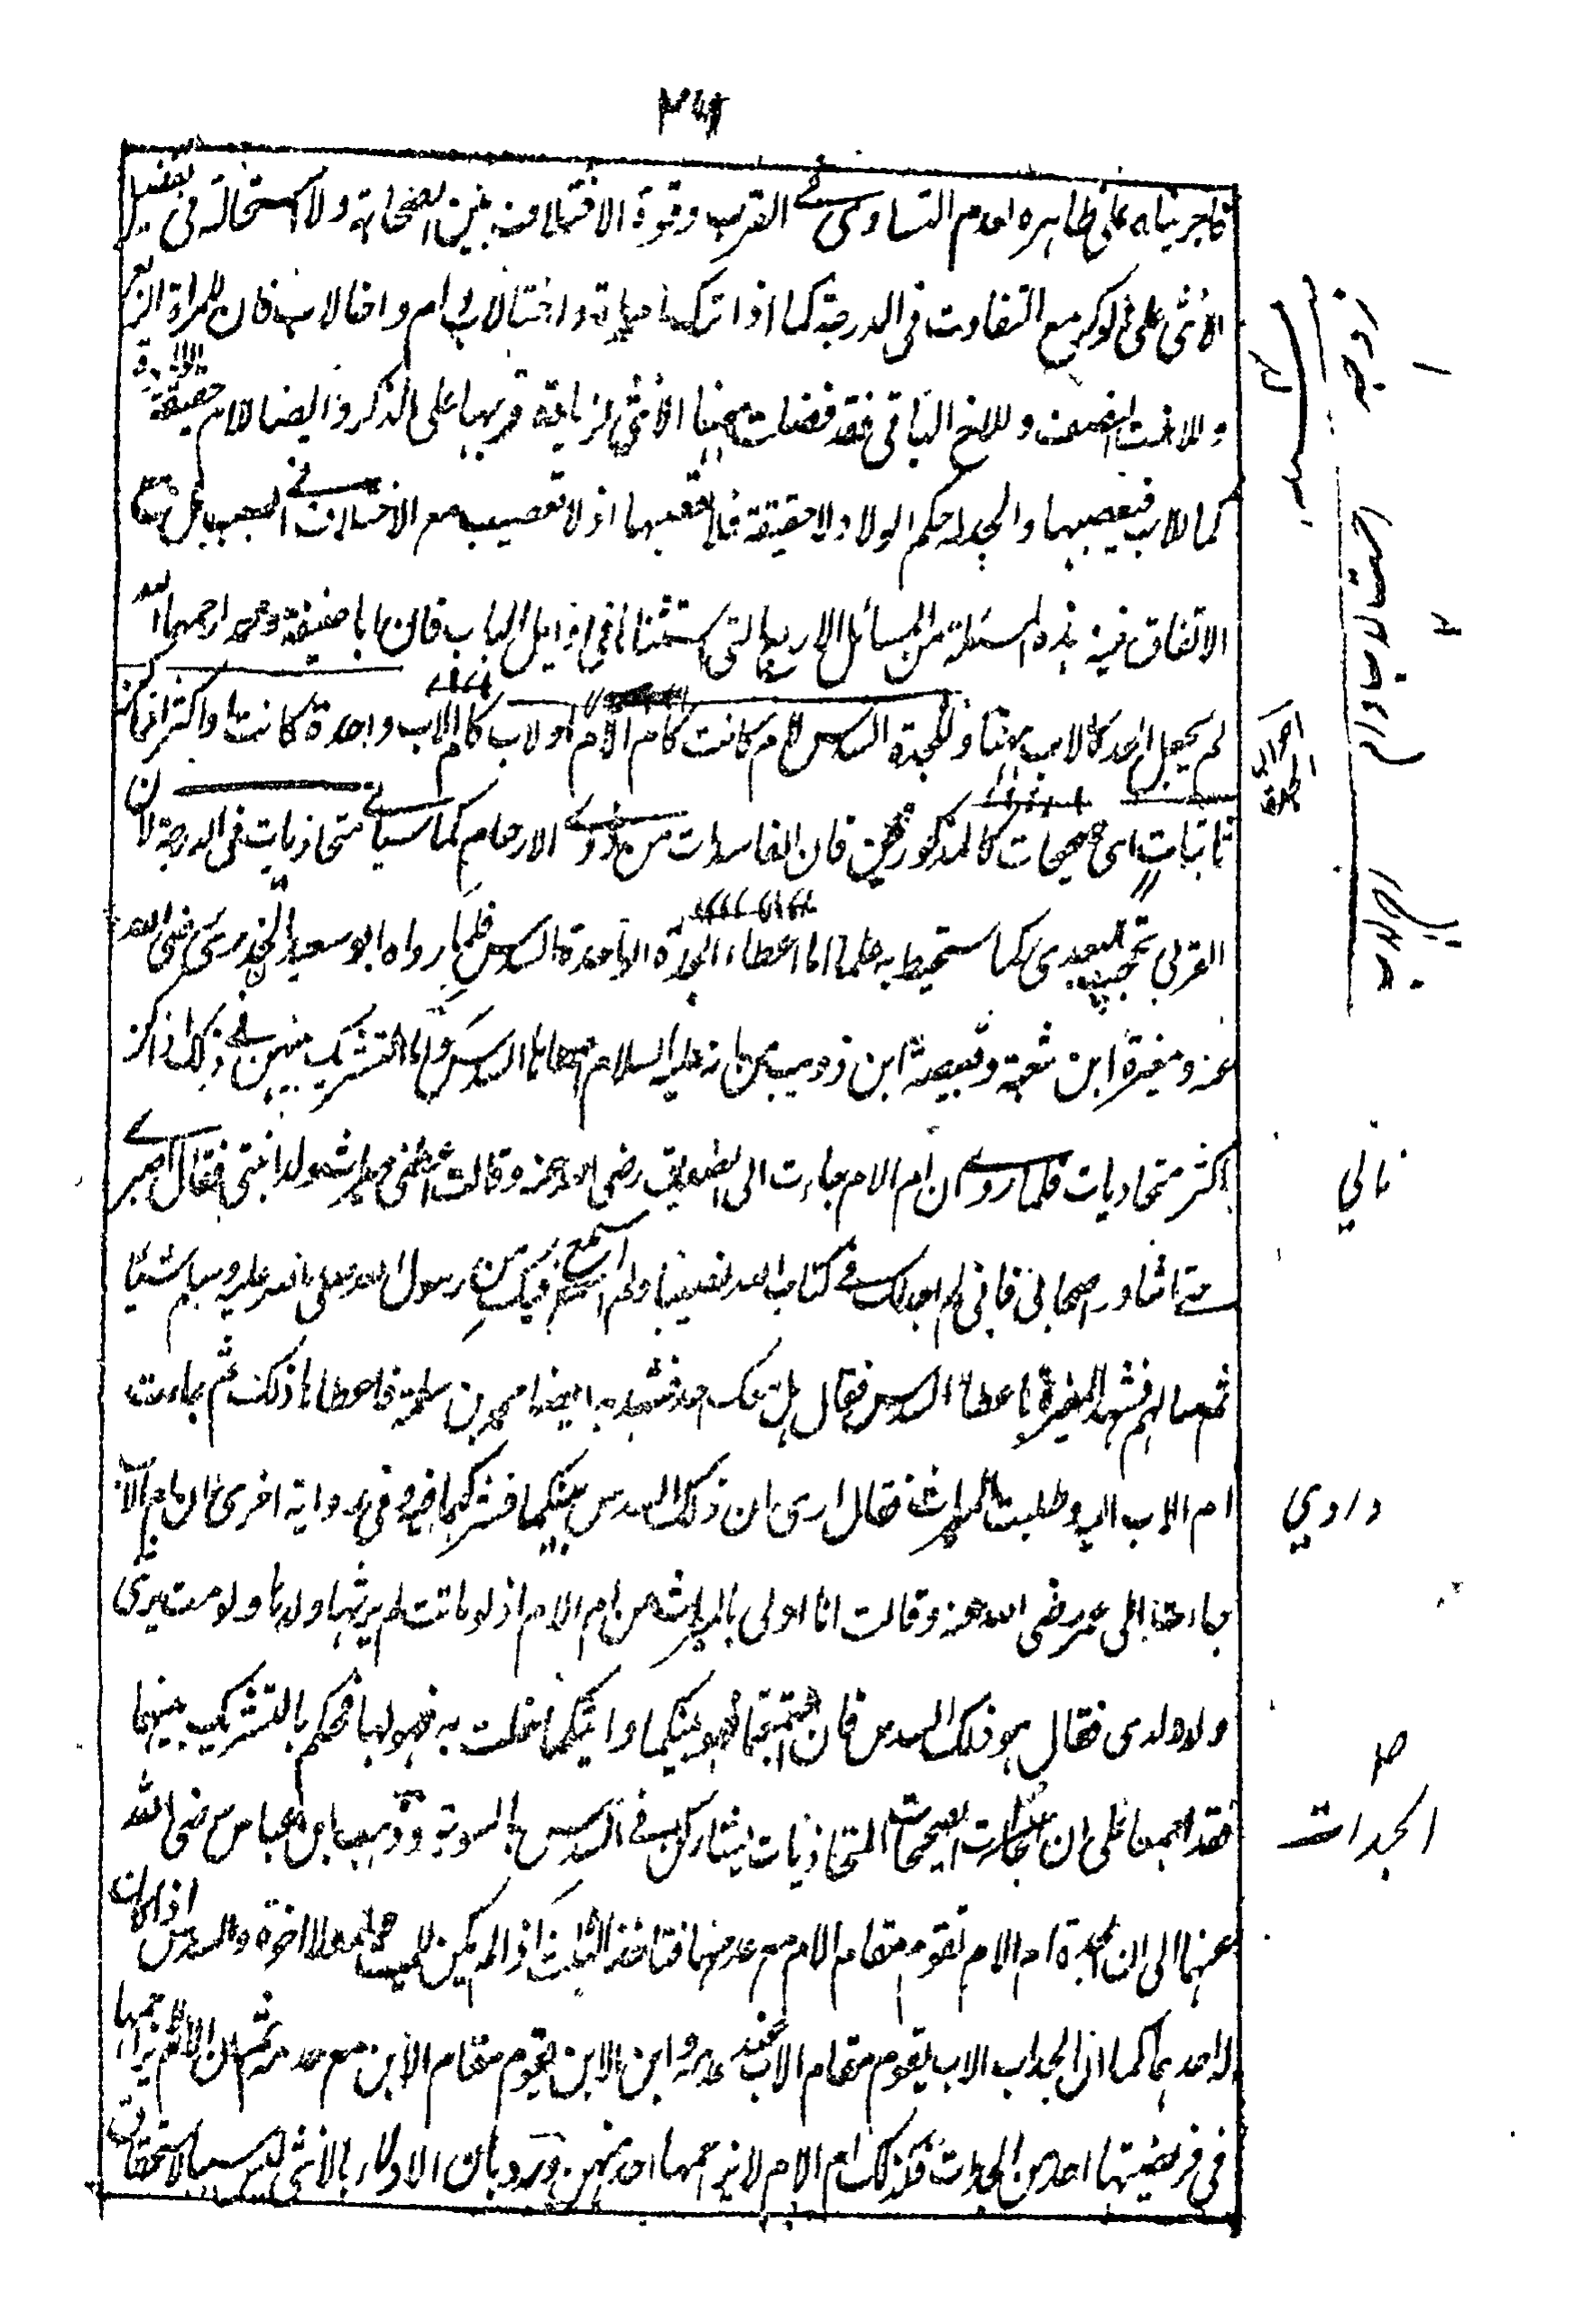 فاجريناه على ظاهره لعدم التساوى في القرب وقوة الاختلاف بين الصحابة ولا استحالة فى تفضيل
الانثى على الذكر مع التفاوت فى الدرجة كما اذا ترك امراة واختا لاب وام واخا لاب فان للمراة الربع
وللاخت النصف وللاخ الباقى فقد فضلت ههنا الانثى لزيادة قربها على الذكر وايضا للام حقيقة الولادة
كما للاب فيعصبها والجد له حكم الولاد لا حقيقة فلا يعصبها اذ لا تعصيب مع الاختلاف في السبب بل مع
الاتفاق فيه هذه المسئلة من المسائل الاربع التى استثناها فى اوايل الباب فان ابا حنيفة ومحمدا رحمهما الله
لم يجعل الجد كالاب ههنا وللجدة السدس لام كانت كام الام او لاب كام الاب واحدة كانت او اكثر اذا كن
ثابتات اى صحيحات كالمذكورتين فان الفاسدات من ذوي الارحام كما سيأتي متحاذيات فى الدرجة لان
القربى تحجب البعدى كما ستحيط به علما اما اعطاء الجدة الواحدة السدس فلما رواه ابو سعيد الخدرى رضى الله
عنه ومغيرة ابن شعبة وقبيصة ابن ذويب من انه عليه السلام اعطاها السدس واما التشريك بينهن في ذلك اذا كن
اكثر متحاذيات فلما روى ان ام الام جاءت الى الصديق رضى الله عنه وقالت اعطنى ميراث ولد ابنتى فقال اصبرى
حتى اشاور اصحابى فانى لم اجد لك في كتاب الله نصيبا ولم اسمع فيك من رسول الله صلى الله عليه وسلم شيئا
ثم سالهم فشهد المغيرة باعطاء السدس فقال هل معك احد فشهد به ايضا محمد بن سلمة فاعطاها ذلك ثم جاءت
ام الاب اليه وطلبت الميراث فقال ارى ان ذلك السدس بينكما فشركهما فيه وفى رواية اخرى ان ام الاب
جاءت الى عمر رضى الله عنه وقالت انا اولى بالميراث من ام الام اذ لو ماتت لم يرثها ولدها ولو مت يرثنى
ولد ولدى فقال هو ذلك السدس فان اجتمعتما فهو بينكما وايتكما خلت به فهو لها فحكم بالتشريك بينهما
فقد اجمعنا على ان الجدات الصحيحات المتحاذيات يتشاركن في السدس بالسوية وذهب ابن عباس رضى الله
عنهما الى ان الجدة ام الام تقوم مقام الام مع عدمها فتاخذ الثلث اذا لم يكن للميت ولد ولا اخوة والسدس اذا كان
لاحدهما كما ان الجد اب الاب يقوم مقام الاب عند عدمه وابن الابن يقوم مقام الابن مع عدمه ثم ان الام لا يزاحمها
فى فريضتها احد من الجدات فكذلك ام الام لا يزاحمها احد منهن ورد بان الادلاء بالانثى ليس سبب لاستحقاق
الجدات